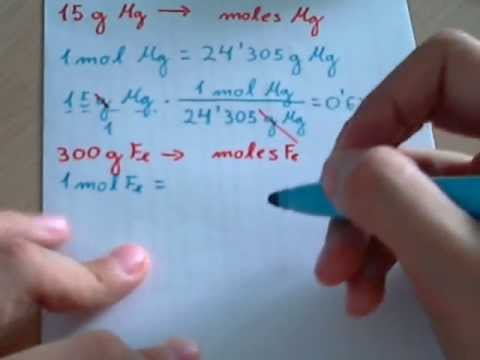 15 g Mg → moles Mg
1 mol Mg = 24'305 g Mg
15 g Mg · 1 mol Mg / 24'305 g Mg = 0'6
1
300 g Fe → moles Fe
1 mol Fe =